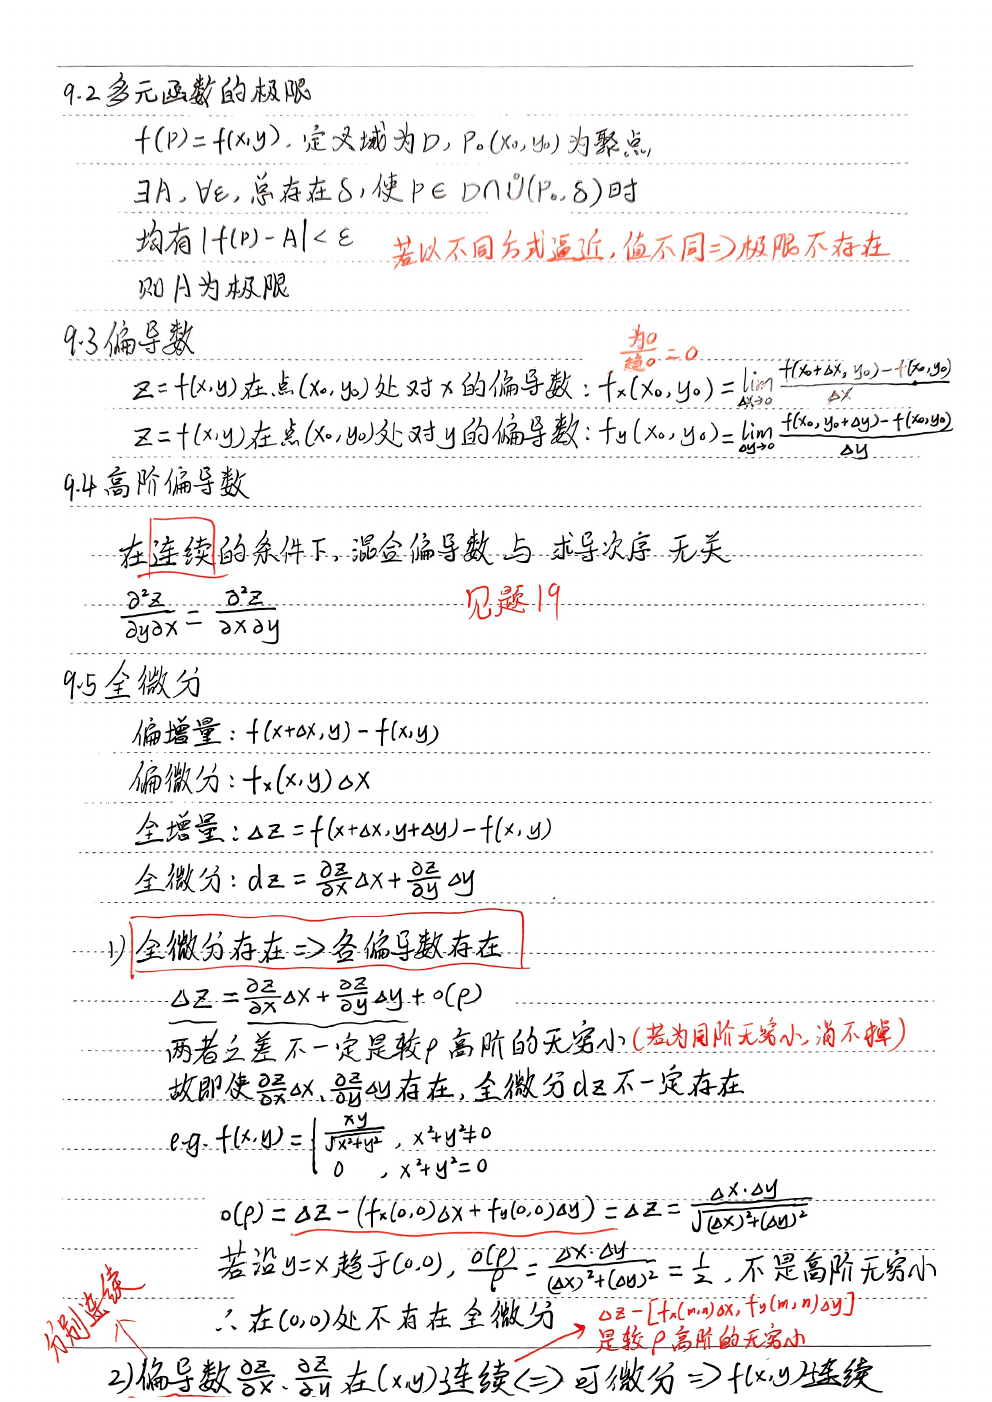 9.2 多元函数的极限
f(P)=f(x,y). 定义域为D, P₀(x₀,y₀)为聚点
∃A, ∀ε, 总存在δ, 使P∈D∩Ů(P₀,δ)时
均有|f(P)-A|<ε 若以不同方式逼近,值不同=>极限不存在
则A为极限
9.3 偏导数
为0/趋0=0
z=f(x,y)在点(x₀,y₀)处对x的偏导数: fx(x₀,y₀)=lim Δx→0 (f(x₀+Δx,y₀)-f(x₀,y₀))/Δx
z=f(x,y)在点(x₀,y₀)处对y的偏导数: fy(x₀,y₀)=lim Δy→0 (f(x₀,y₀+Δy)-f(x₀,y₀))/Δy
9.4 高阶偏导数
在连续的条件下,混合偏导数与求导次序无关
∂²z/∂y∂x=∂²z/∂x∂y 见题19
9.5 全微分
偏增量: f(x+Δx,y)-f(x,y)
偏微分: fx(x,y)Δx
全增量: Δz=f(x+Δx,y+Δy)-f(x,y)
全微分: dz=∂z/∂x Δx+∂z/∂y Δy
1) 全微分存在=>各偏导数存在
Δz=∂z/∂x Δx+∂z/∂y Δy+o(ρ)
两者之差不一定是较ρ高阶的无穷小(若为同阶无穷小,消不掉)
故即使∂z/∂x Δx、∂z/∂y Δy存在,全微分dz不一定存在
e.g. f(x,y)={ xy/√(x²+y²), x²+y²≠0
0, x²+y²=0
o(ρ)=Δz-(fx(0,0)Δx+fy(0,0)Δy)=Δz=Δx·Δy/√((Δx)²+(Δy)²)
若沿y=x趋于(0,0), o(ρ)/ρ=Δx·Δy/((Δx)²+(Δy)²)=1/2, 不是高阶无穷小
∴在(0,0)处不存在全微分
Δz-[fx(m,n)Δx,fy(m,n)Δy]
是较ρ高阶的无穷小
分别连续
2)偏导数∂z/∂x、∂z/∂y在(x,y)连续<=>可微分=>f(x,y)连续